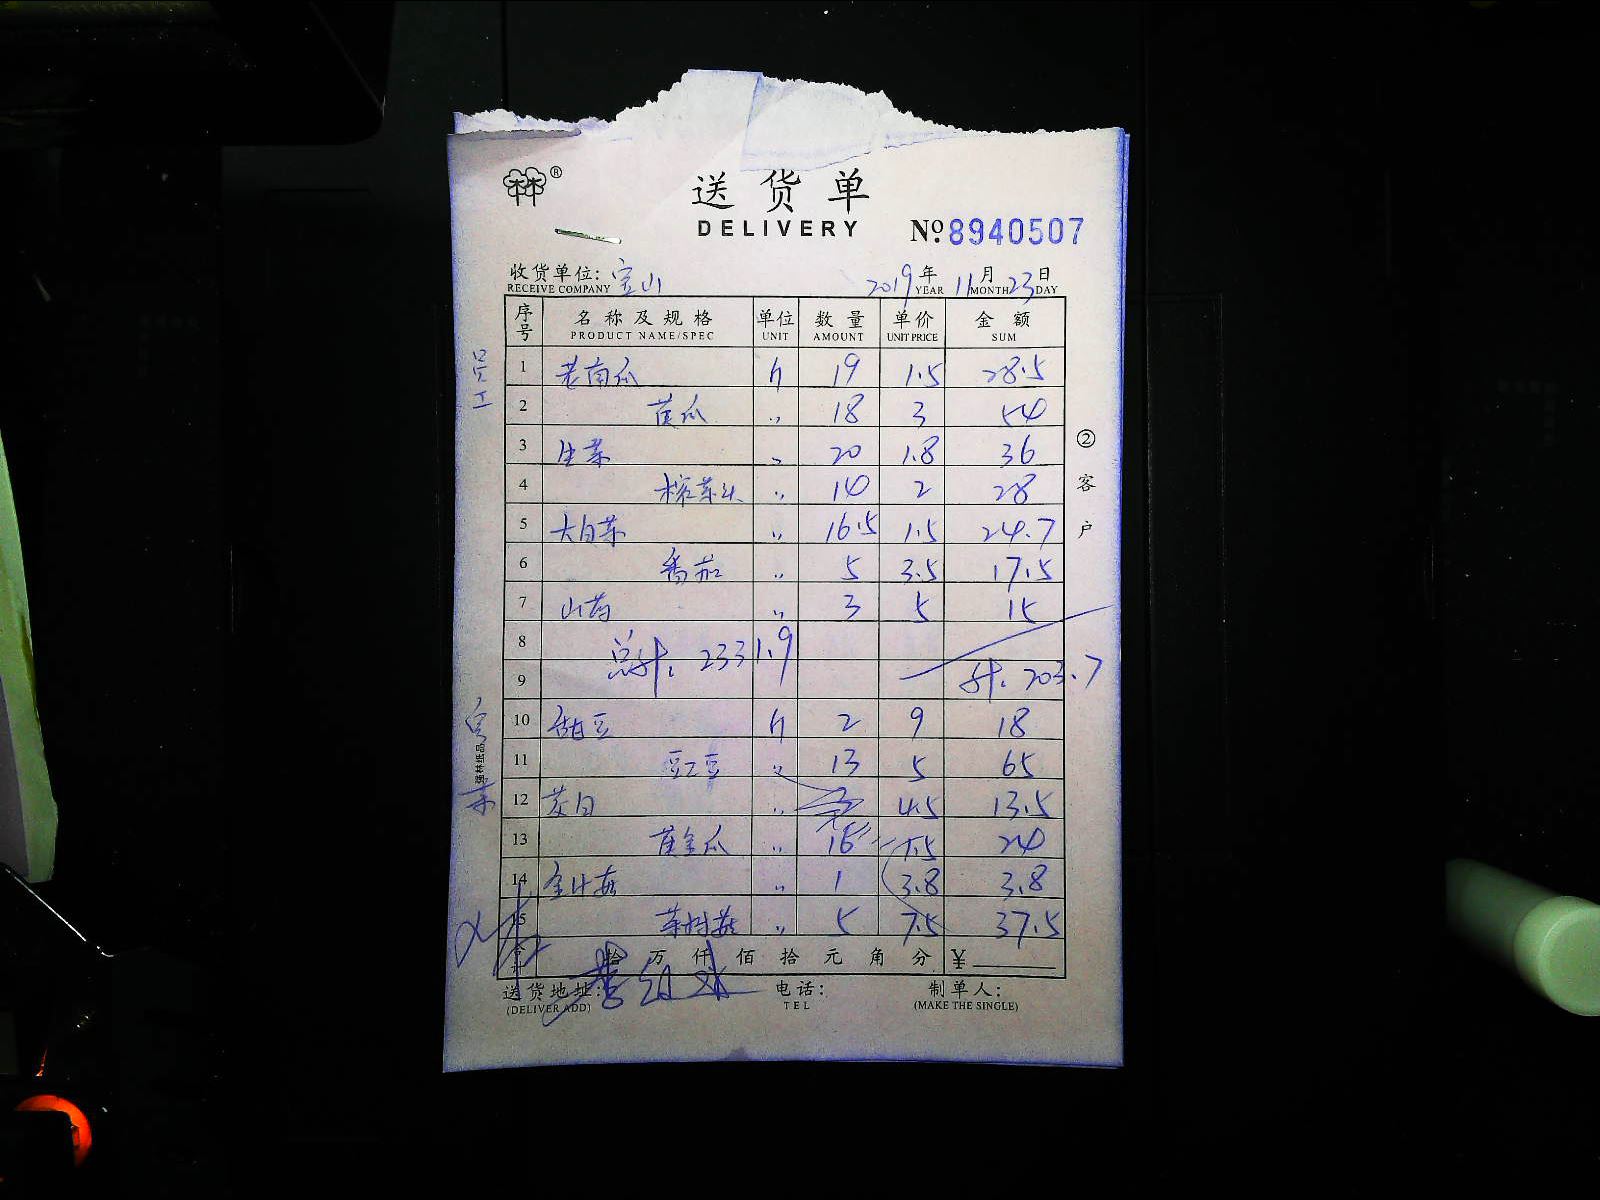 送货单
DELIVERY
№8940507
收货单位: 宝山 2019年 11月 23日
RECEIVE COMPANY YEAR MONTH DAY
序号 名称及规格 单位 数量 单价 金额
PRODUCT NAME/SPEC UNIT AMOUNT UNIT PRICE SUM
1 老南瓜 斤 19 1.5 28.5
2 黄瓜 〃 18 3 54
3 生菜 〃 20 1.8 36
4 榨菜头 〃 14 2 28
5 大白菜 〃 16.5 1.5 24.7
6 番茄 〃 5 3.5 17.5
7 山药 〃 3 5 15
8 总计: 2331.9
9 计: 203.7
10 甜豆 斤 2 9 18
11 豇豆 〃 13 5 65
12 茭白 〃 3 4.5 13.5
13 黄金瓜 〃 16 1.5 24
14 金针菇 〃 1 3.8 3.8
15 茶树菇 〃 5 7.5 37.5
合计 拾 万 仟 佰 拾 元 角 分 ¥
送货地址: 电话: 制单人:
(DELIVER ADD) TEL (MAKE THE SINGLE)
员工
②客户